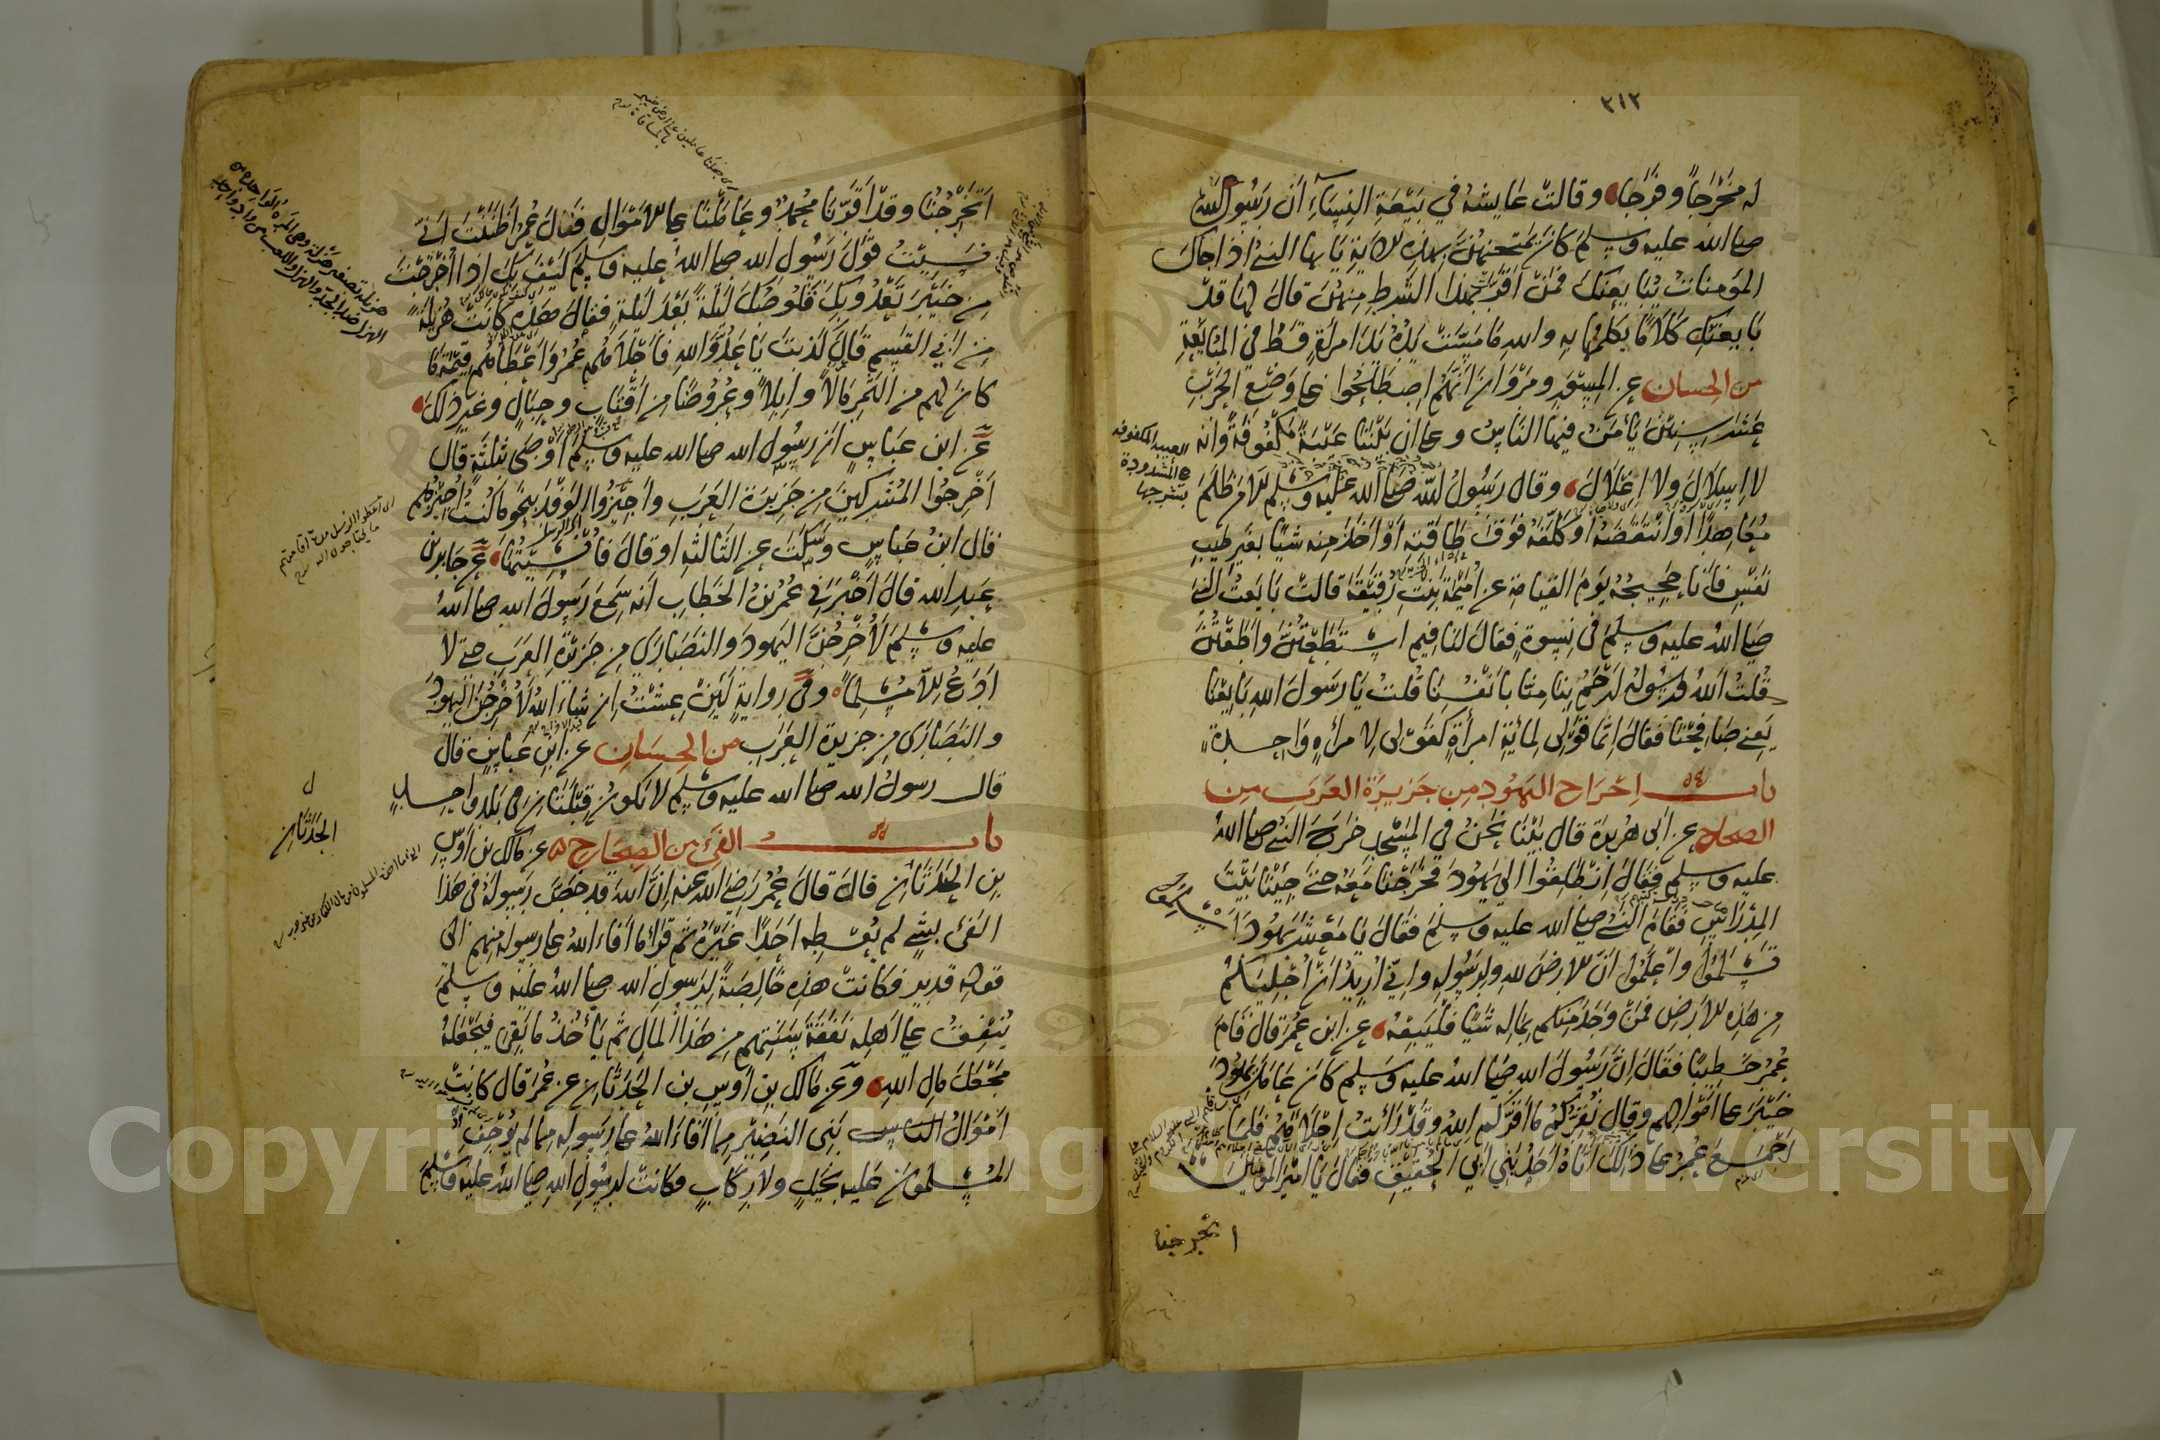 ٣١٢
له مَخْرَجًا وفَرَجًا وقالت عايشة في بَيْعَةِ النِسَاءِ اَن رَسُولَ الله
صلى الله عليه وسلم كانَ يمتحنهُنَّ بهذه الاية يَا يها النبي اذا جاك
المؤمناتُ يُبَايعنَكَ فمَنْ اَقَرَّتْ بهٰذا الشَرطِ مِنهُنَ قالَ لها قدْ
بَا يعتكِ كَلَامًا يكلمُها به والله مَا مَسَّتْ يَدُهُ يَدَ امرَاةٍ قَطُّ في المُبَايَعَةِ
من الحسان عن المِسْوَرِ ومَرْوَانَ اَنَّهُمْ اصطَلَحُوا على وَضْعِ الحَرْبِ
عَشْرَ سِنِيْنَ يَأمَنُ فيها النَاسُ وعلى ان بَيْنَنَا عَيْبَةً مَكْفُوفَةً وانه
لا اِسْلَالَ ولا اِغْلَالَ وقال رَسُولُ الله صلى الله عليه وسلم الا مَن ظَلَمَ
مُعَاهِدًا اَوْ انْتَقَصَهُ اَو كَلَّفَهُ فَوْقَ طَاقَتِه اَوْ اَخَذَ مِنه شَيًا بغَيرِ طِيبِ
نَفْسٍ فَاَنَا حَجِيجُهُ يَومَ القيامَةِ عن اُمَيْمَةَ بِنتِ رُقَيْقَةَ قالت بَا يَعتُ النبيَ
صلى اللهُ عليه وسلمَ في نِسوةٍ فقالَ لنَا فيمِ اسْتَطَعْتُنَّ واَطَقْتُنَّ
قُلتُ اَللهُ ورَسُولُهُ اَرْحَمُ بِنا مِنَّا باَنْفُسِنَا قُلتُ يَا رَسُولَ اللهِ بَايِعْنَا
يَعنِي صَافِحْنَا فقَالَ اِنَّمَا قَوْلِي لِمائةِ امرأةٍ كقَولي لِا مرأةٍ وَاحِدةٍ
باب ٥٤ اِخْرَاج اليَهُودِ مِن جَزِيرَة العَرَبِ مِن
الصحاح عن ابي هُرَيرَة قال بَيْنَا نَحنُ في المَسْجِدِ خرَجَ النبي صلى اللهُ
عليه وسلم فقَالَ انْطَلِقُوْا اِلىَ يَهُودَ فخَرَجْنَا مَعَهُ حَتى جِئْنَا بَيْتَ
المِدْرَاسِ فقَامَ النبي صلى الله عليه وسلمَ فقَالَ يَا مَعْشَرَ يَهُودَ اَ
سْلِمُوا تَسْلَمُوا واعْلَمُوا اَنَّ الارضَ للهِ ولِرَسُولِه واِنّي اُرِيدُ اَنْ اُجْلِيَكُمْ
مِن هٰذِه الارضِ فَمَنْ وَجَدَ مِنكم بِمَالِه شَيًا فَلْيَبِعْهُ عن ابن عُمَرَ قال قَامَ
عُمَرُ خَطِيبًا فقَالَ اِنَّ رَسُولَ اللهِ صَلى اللهُ عليه وسَلم كانَ عَامَلَ يَهُودَ
خَيْبَرَ على اَمْوَالِهم وقال نُقِرُّكُمْ ما اَقَرَّكم اللهُ وقَدْ رَأَيْتُ اِجْلَاءَهُمْ فَلَمَّا
اَجْمَعَ عُمَرُ على ذٰلكَ اَتَاهُ اَحَدُ بَنِي اَبي الحُقَيقِ فقَالَ يَا اَمِيرَ المؤمنين
اتخرجنا
العيبة المكفوفة
المشدودة
بشرجها
اَتُخْرِجُنَا وقَدْ اَقَرَّنَا مُحَمدٌ وعَامَلَنَا على الامْوَالِ فقَالَ عُمَرُ اَظَنَنْتَ اَنّي
نَسِيْتُ قَوْلَ رَسُولِ الله صلى اللهُ عليه وسلم كَيْفَ بِكَ اذا اُخْرِجْتَ
مِن خَيْبَرَ تَعْدُو بِكَ قَلُوصُكَ لَيْلَةً بَعْدَ لَيْلةٍ فقالَ هٰذه كانَتْ هُزَيْلَةً
مِن اَبِي القَاسِمِ قالَ كَذبتَ يَا عَدُوَّ اللهِ فَاَجْلَاهُمْ عُمَرُ واَعْطَاهُم قِيْمَةَ مَا
كانَ لهم من الثَمَرِ مَالًا واِبِلًا وعُرُوضًا مِن اَقْتَابٍ وحِبَالٍ وغَيرِ ذلكَ
عن ابن عَبَاسٍ انَ رَسُولَ الله صلى الله عليه وسلمَ اَوْصَى بثَلثَةٍ قال
اَخْرِجُوا المُشْرِكينَ مِن جَزِيرَة العَرَبِ واَجِيْزُوا الوَفْدَ بِنَحْوِ مَا كُنْتُ اُجِيْزُهُم
قال ابنُ عَبَاسٍ وسَكَتَ عن الثَالثةِ اَو قالَ فاُنْسِيْتُهَا عن جَابِر بن
عَبدِ الله قالَ اَخْبَرَنِي عُمَرُ بنُ الخَطَابِ اَنه سَمِعَ رَسُولَ اللهِ صلى اللهُ
عليه وسلمَ لَاُخْرِجَنَّ اليَهُودَ والنَصَارَى مِن جَزِيْرَة العَرَبِ حتى لا
اَدَعَ اِلَّا مُسْلِمًا وفي رِوايةٍ لَئِنْ عِشْتُ اِن شَاءَ اللهُ لَاُخْرِجَنَّ اليَهُودَ
والنَصَارَى مِن جَزيرة العَرَبِ من الحِسَانِ عن ابنِ عَباسٍ قال
قال رسولُ الله صلى الله عليه وسلم لا تَكونُ قِبْلَتَانِ في بَلَدٍ واحِدٍ
باب الفَيْ من الصِحَاحِ عن مَالك بن اَوْسِ
بنِ الحَدَثَانِ قالَ قالَ عُمَرُ رَضي الله عنه اِنَّ اللهَ قد خَصَّ رَسولَهُ في هٰذا
الفَيْ بشَيٍ لم يُعْطِهِ اَحَدًا غَيْرَهُ ثم قَرَأَ مَا اَفَاءَ اللهُ على رسوله منهم الى
قوله قدير فكانتْ هٰذِه خَالِصَةً لِرَسولِ الله صلى اللهُ عليه وسلمَ
يُنْفِقُ على اَهلِه نَفَقَةَ سَنَتِهِم مِن هٰذا المَالِ ثُمَّ يَأْخُذُ ما بَقِيَ فيَجْعَلُهُ
مَجْعَلَ مالِ اللهِ وعن مَالك بن اَوسِ بن الحَدَثَانِ عن عُمَرَ قال كانَتْ
اَمْوَالُ بَنِي النَضِيْرِ مِمَّا اَفَاءَ اللهُ على رَسولِهِ مِمَّا لم يُوْجِفِ
المُسْلِمُونَ عليه بخَيلٍ ولا رِكَابٍ فكانَتْ لرسُولِ اللهِ صلى اللهُ عليه وسلمَ
الحَدَثَانِ
Copyright © King Saud University